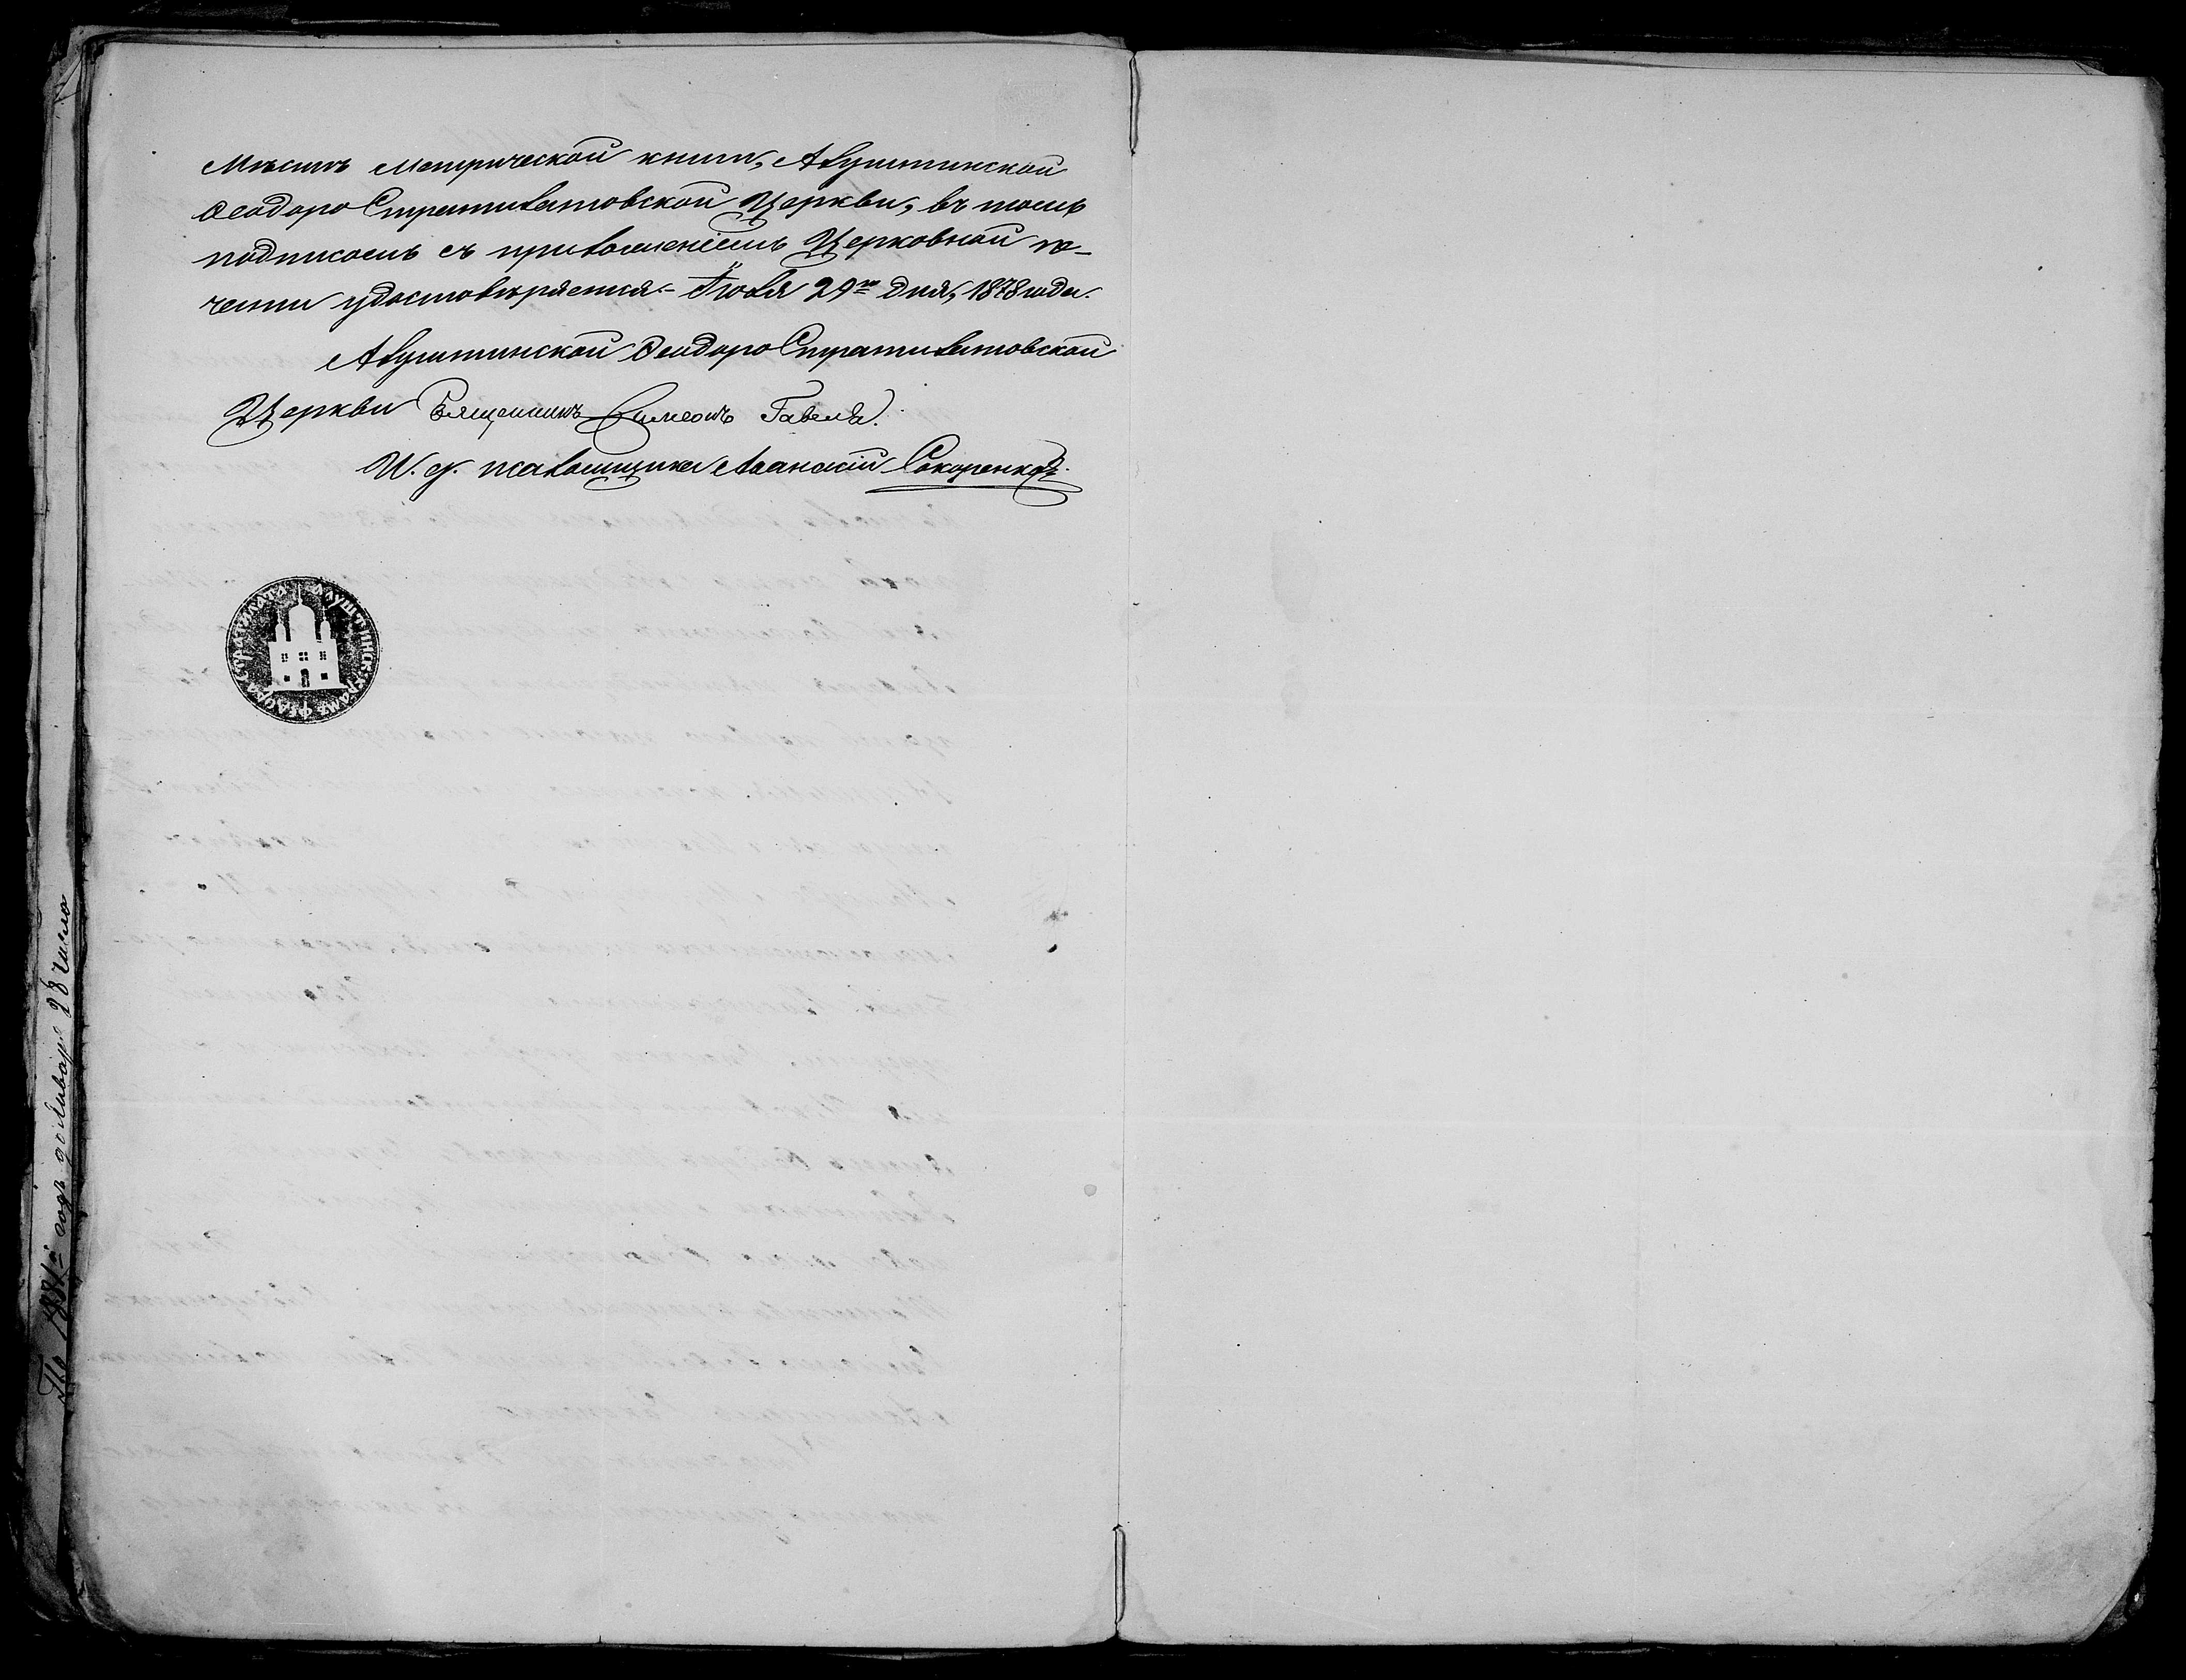 мѣстѣ Метрической книги, Алуштинской
Ѳеодоро Стратилатовской Церкви, въ томъ
подписомъ съ приложеніемъ Церковной пе-
чати удостовѣряемъ.– Іюля 29го дня, 1878 года.
Алуштинской Ѳеодоро Стратилатовской
Церкви Священникъ Симеонъ
И. д. псаломщика Аѳанасій Сокоренко.
АЛУШТИНСК. ХРАМЪ ФЕОДОРА СТРАТИЛАТА
28 число